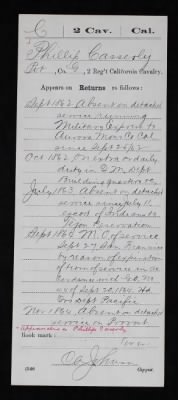 C 2 Cav. Cal.
Phillip Casserly
Pvt., Co. G, 2 Reg't California Cavalry.
Appears on Returns as follows:
Sept 1862. Absent on detached
service running
Military Express to
Aurora Mono Co Cal
since Sept 26/62
Oct 1862. On extra or daily
duty in Q.M. Dept
Building quarters
July 1863. Absent on detached
service since July 11
escort of Indians to
Reservation
Sept 1864. M.O. of service
Sept 27 San Francisco
by reason of expiration
of term of service in ac-
cordance with G.O. No
of Sept 20, 1864. Hd
Qrs Dept Pacific
Nov. 1864. Absent on detached
service
Phillip Casserly
Book mark:
(546) Copyist.